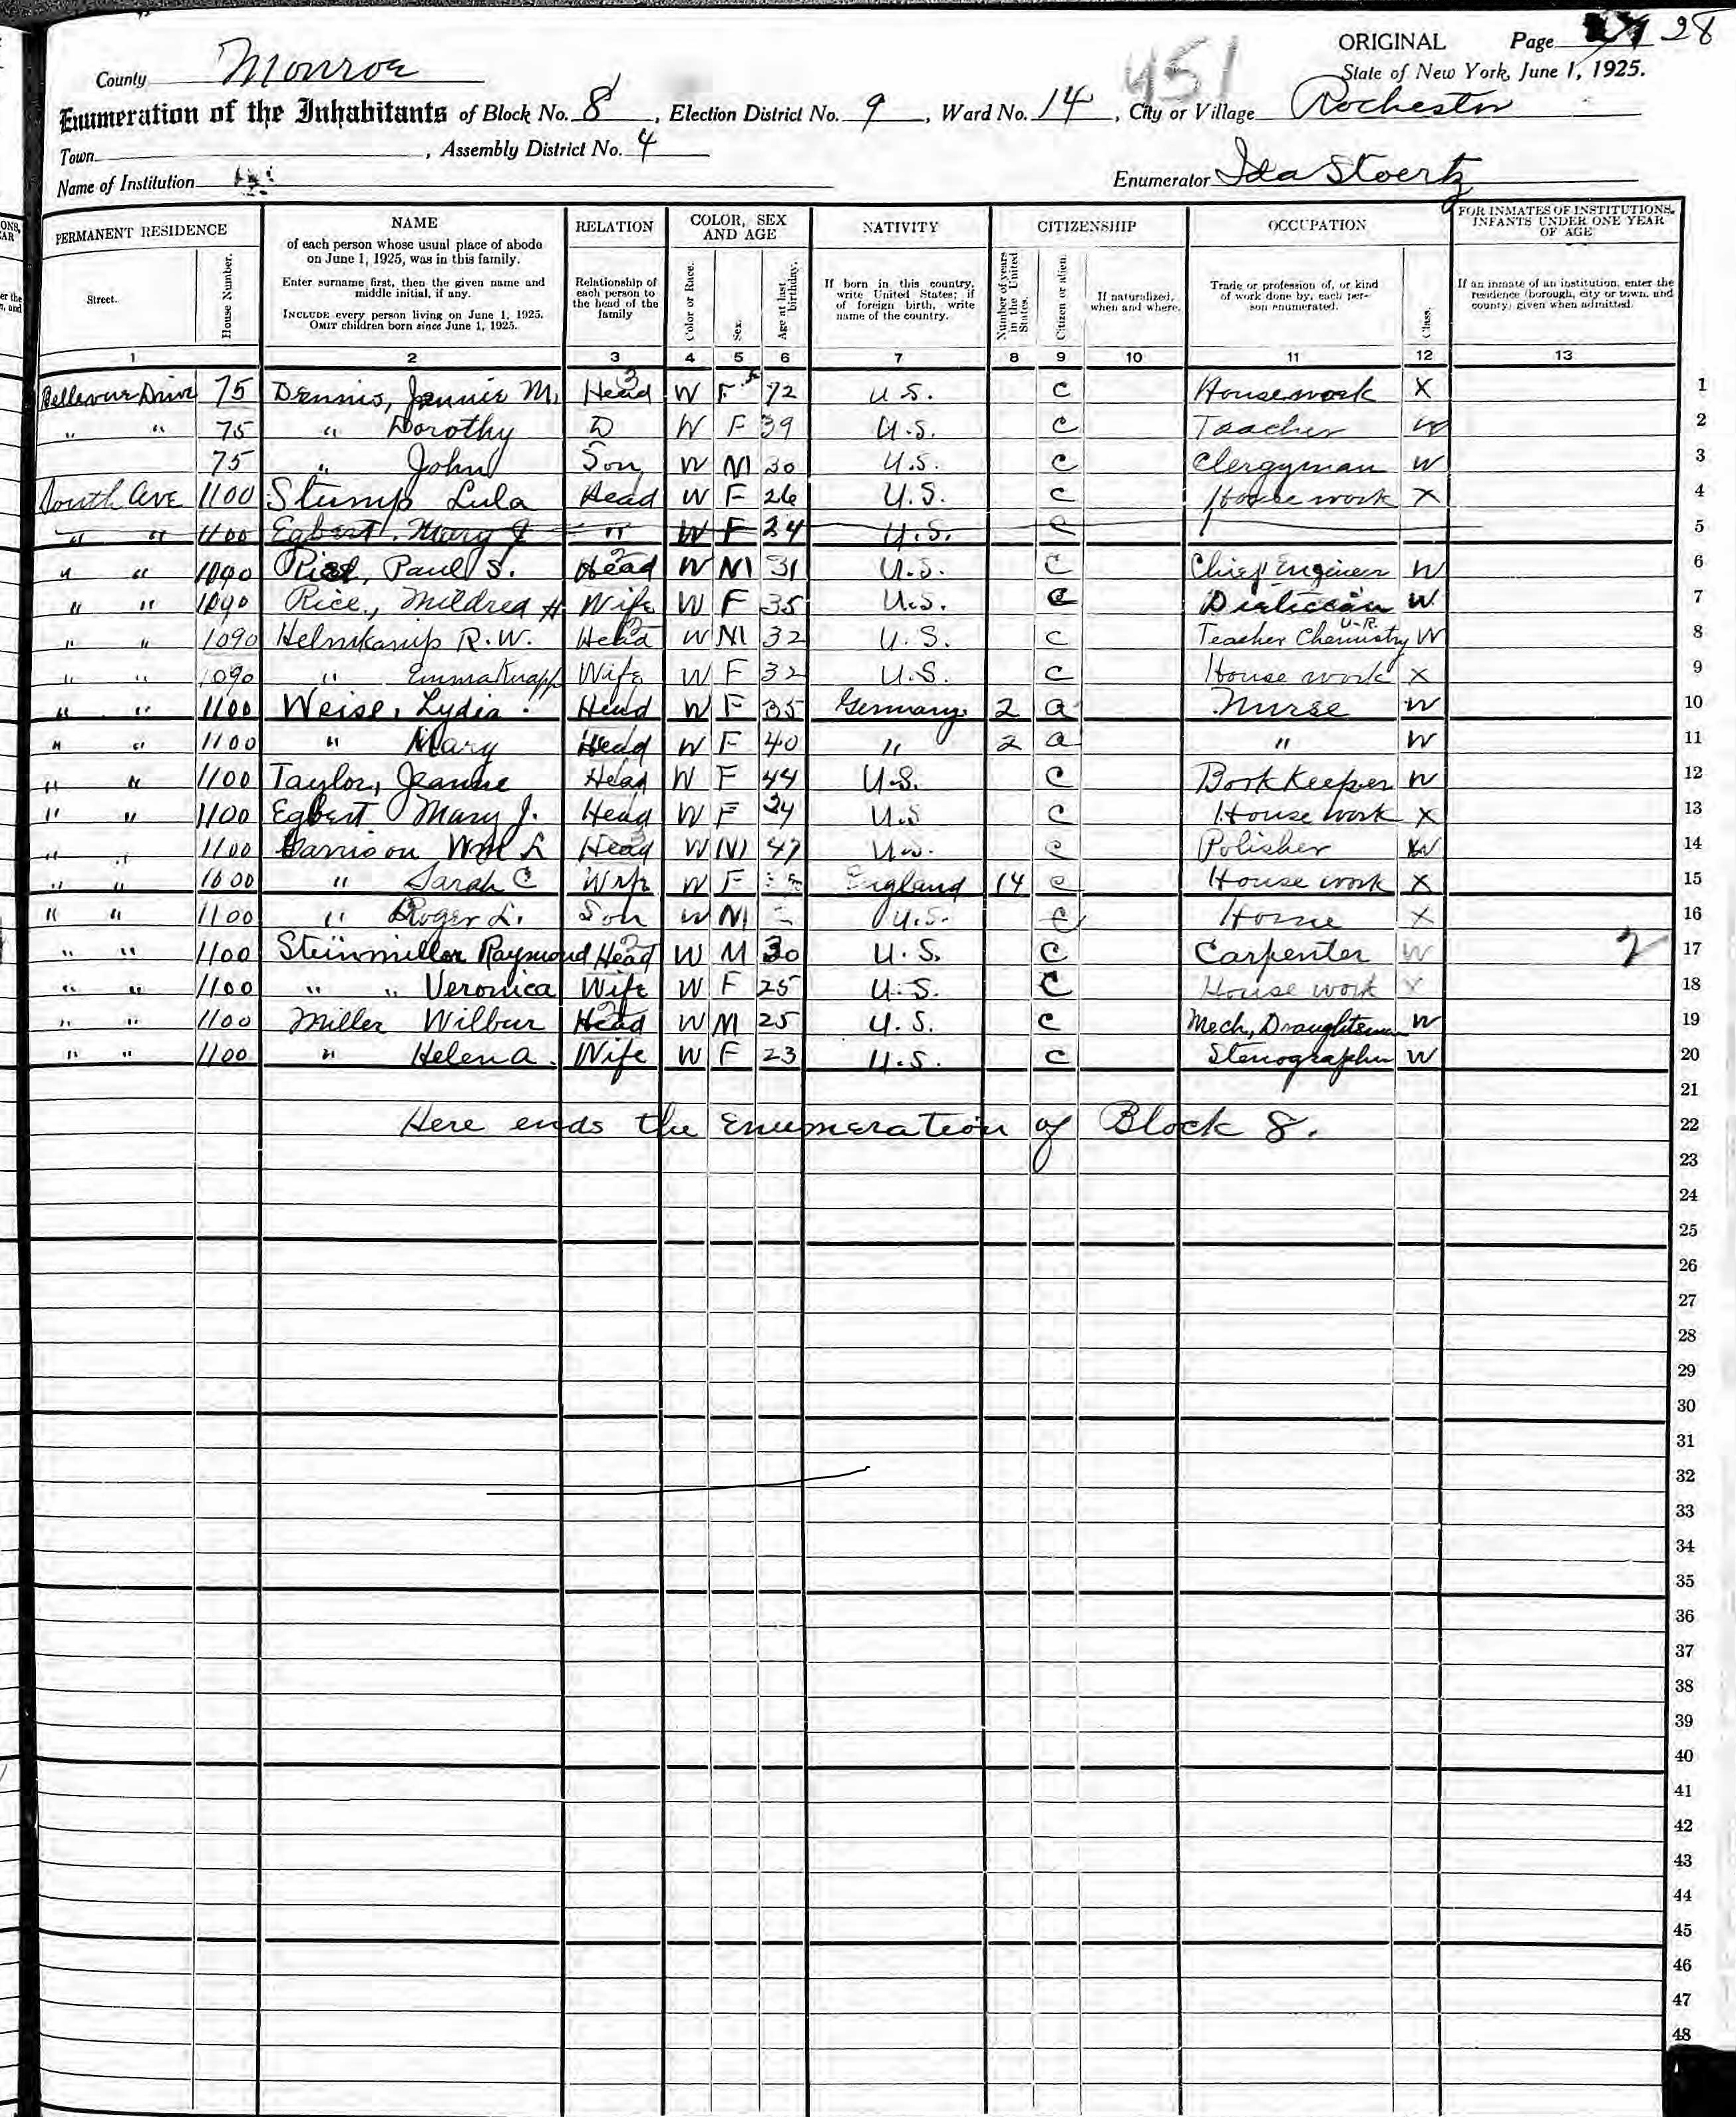 ORIGINAL Page 28
County Monroe State of New York, June 1, 1925.
451
Enumeration of the Inhabitants of Block No. 8, Election District No. 9, Ward No. 14, City or Village Rochester
Town , Assembly District No. 4
Name of Institution Enumerator Ida Stoertz
PERMANENT RESIDENCE NAME RELATION COLOR, SEX AND AGE NATIVITY CITIZENSHIP OCCUPATION FOR INMATES OF INSTITUTIONS, INFANTS UNDER ONE YEAR OF AGE
Street. House Number. of each person whose usual place of abode on June 1, 1925, was in this family. Enter surname first, then the given name and middle initial, if any. INCLUDE every person living on June 1, 1925. OMIT children born since June 1, 1925. Relationship of each person to the head of the family Color or Race. Sex. Age at last birthday. If born in this country, write United States; if of foreign birth, write name of the country. Number of years in the United States. Citizen or alien. If naturalized, when and where. Trade or profession of, or kind of work done by, each person enumerated. Class. If an inmate of an institution, enter the residence (borough, city or town, and county) given when admitted.
1 2 3 4 5 6 7 8 9 10 11 12 13
Bellevue Drive 75 Dennis, Jennie M. Head 3 W F 72 U.S. C Housework X 1
" " 75 " Dorothy D W F 39 U.S. C Teacher W 2
75 " John Son W M 30 U.S. C Clergyman W 3
South Ave 1100 Stump Lula Head W F 26 U.S. C House work X 4
" " 1100 Egbert, Mary J " W F 24 U.S. C 5
" " 1090 Rice, Paul S. Head 2 W M 31 U.S. C Chief Engineer W 6
" " 1090 Rice, Mildred H Wife W F 35 U.S. C Dietician W 7
" " 1090 Helmkamp R.W. Head 2 W M 32 U.S. C Teacher Chemistry U-R. W 8
" " 1090 " Emma Knapp Wife W F 32 U.S. C House work X 9
" " 1100 Weise, Lydia Head W F 35 Germany 2 a Nurse W 10
" " 1100 " Mary Head W F 40 " 2 a " W 11
" " 1100 Taylor, Jeanne Head W F 44 U.S. C Bookkeeper W 12
" " 1100 Egbert Mary J. Head W F 24 U.S C House work X 13
" " 1100 Garrison Wm L Head W M 47 U.S. C Polisher W 14
" " 1000 " Sarah C Wife W F England 14 C House work X 15
" " 1100 " Roger L. Son W M U.S. C Home X 16
" " 1100 Steinmiller Raymond Head 2 W M 30 U.S. C Carpenter W 2 17
" " 1100 " " Veronica Wife W F 25 U.S. C House work X 18
" " 1100 Miller Wilbur Head 2 W M 25 U.S. C Mech. Draughtsman W 19
" " 1100 " Helen A. Wife W F 23 U.S. C Stenographer W 20
21
Here ends the Enumeration of Block 8. 22
23
24
25
26
27
28
29
30
31
32
33
34
35
36
37
38
39
40
41
42
43
44
45
46
47
48